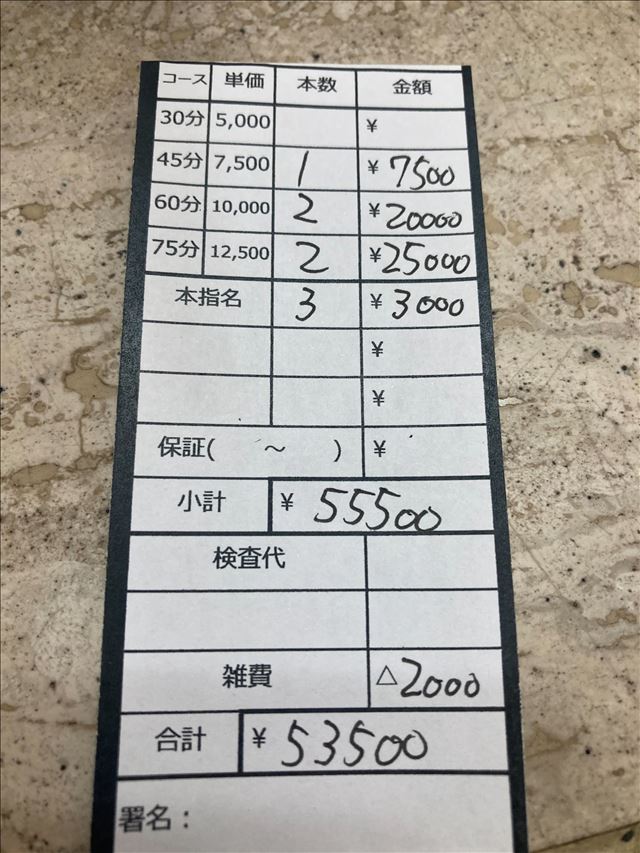 コース 単価 本数 金額
30分 5,000 ¥
45分 7,500 1 ¥7500
60分 10,000 2 ¥20000
75分 12,500 2 ¥25000
本指名 3 ¥3000
¥
¥
保証( ～ ) ¥
小計 ¥55500
検査代
雑費 △2000
合計 ¥53500
署名：